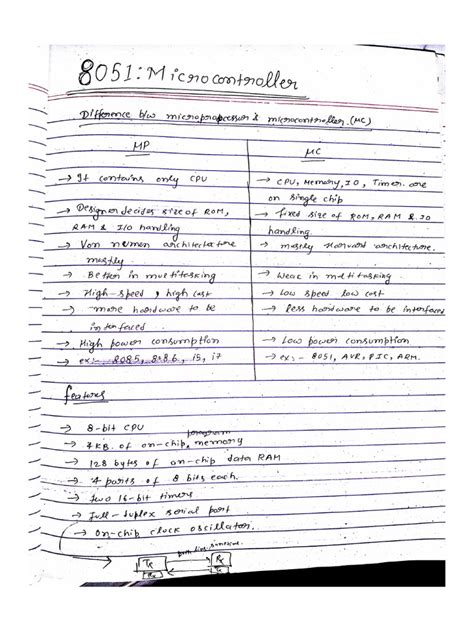 8051: Microcontroller
Difference b/w microprocessor & microcontroller (MC)
MP
→ It contains only CPU
→ Designer decides size of ROM,
RAM & I/O handling
→ Von neumen architecture
mostly
→ Better in multitasking
→ High-speed, high cost
→ more hardware to be
interfaced
→ High power consumption
→ ex:- 8085, 8086, i5, i7
MC
→ CPU, Memory, IO, Timer are
on single chip
→ fixed size of ROM, RAM & IO
handling.
→ mostly Harvard architecture.
→ Weak in multitasking
→ Low speed low cost
→ less hardware to be interfaced
→ Low power consumption
→ ex:- 8051, AVR, PIC, ARM.
features
→ 8-bit CPU
→ 4KB. of on-chip program memory
→ 128 bytes of on-chip data RAM
→ 4 ports of 8 bits each.
→ two 16-bit timers
→ full-duplex serial port
→ On-chip clock oscillator.
Tx
Rx
Rx
Tx